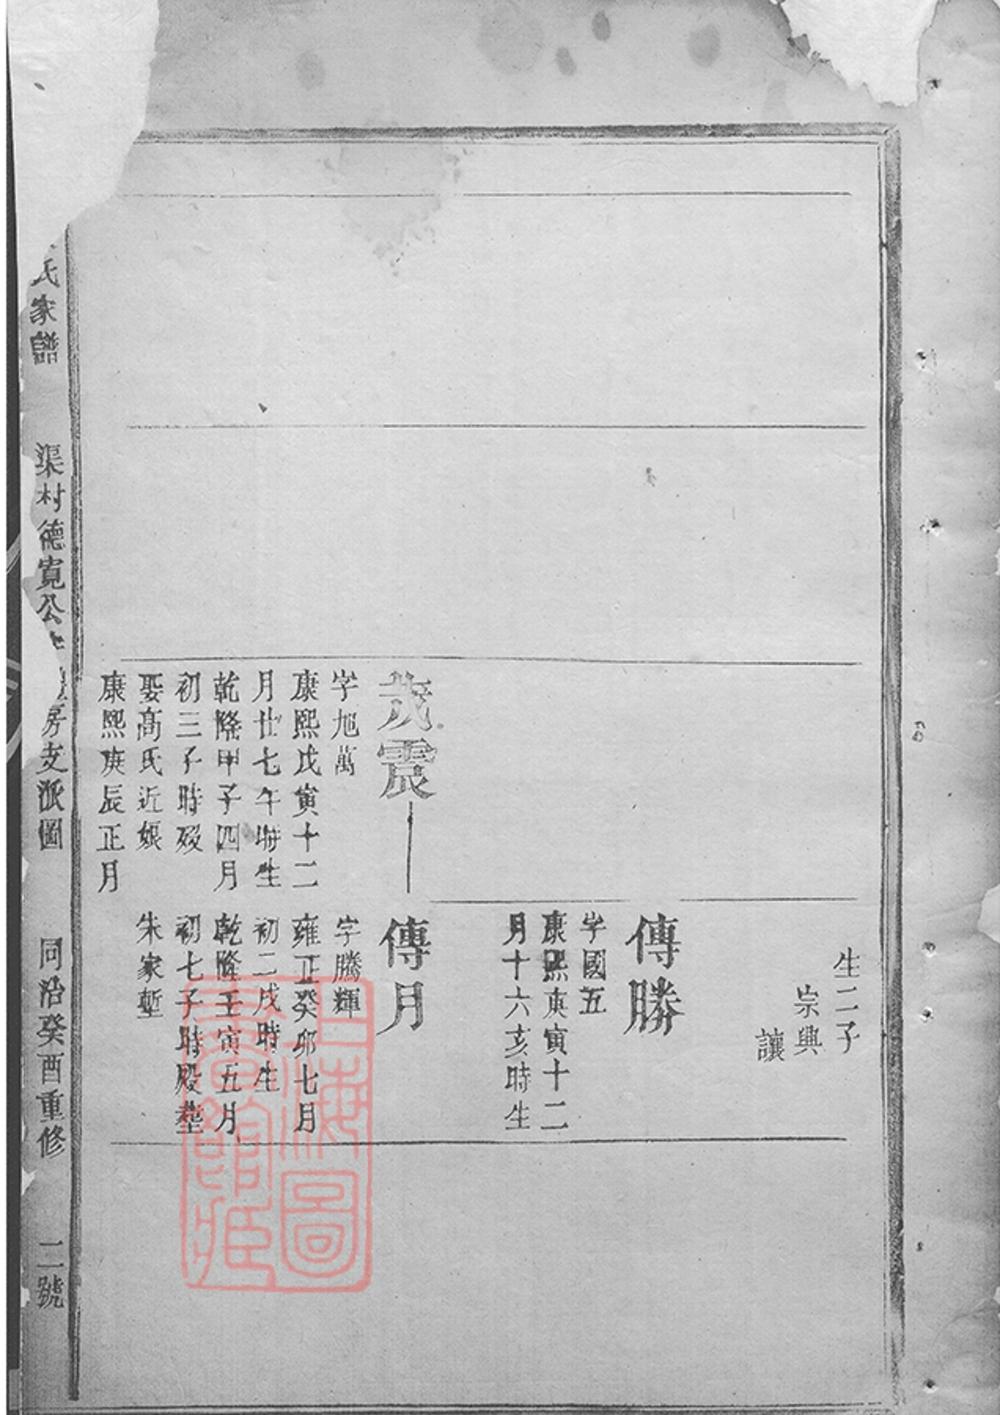 生二子
宗興
讓
傳勝
字國五
康熙庚寅十二
月十六亥時生
茂震
字旭萬
康熙戊寅十二
月廿七午時生
乾隆甲子四月
初三子時歿
娶高氏近娘
康熙庚辰正月
傳月
字騰輝
雍正癸卯七月
初二戌時生
乾隆壬寅五月
初七子時歿塟
朱家塹
氏家譜
渠村德寬公
房支派圖
同治癸酉重修
二號
上海圖書館藏